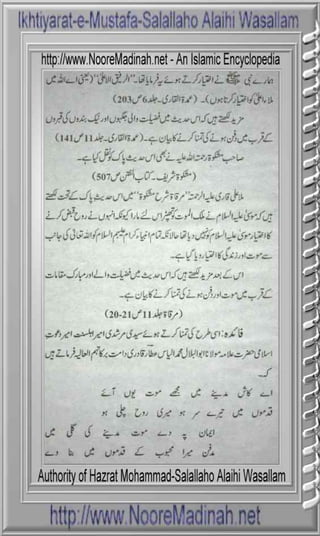 Ikhtiyarat-e-Mustafa-Salallaho Alaihi Wasallam
http://www.NooreMadinah.net - An Islamic Encyclopedia
ہمارے نبی ﷺ نے اختیار کرتے ہوئے یہ فرمایا تھا۔ "الرفیق الاعلیٰ" (یعنی اے اللہ میں
ملاء اعلیٰ کو اختیار کرتا ہوں)۔ (عمدۃ القاری۔ جلد 6 ص 203)
مزید لکھتے ہیں کہ اس حدیث میں فضیلت والی جگہوں اور نیک بندوں کی قبروں
کے قرب میں دفن ہونے کی تمنا کرنے کا بیان ہے۔ (عمدۃ القاری۔ جلد 11 ص 141)
صاحب مشکوٰۃ رحمتہ اللہ علیہ نے بھی اس حدیث پاک کو نقل کیا ہے۔
(مشکوٰۃ شریف۔ کتاب الفتن ص 507)
ملا علی قاری علیہ الرحمتہ "مرقاۃ شرح مشکوٰۃ" میں اس حدیث پاک کے تحت لکھتے
ہیں کہ موسیٰ علیہ السلام نے ملک الموت کو تھپڑ اس لئے مارا کیونکہ انہوں نے روح قبض کرنے
کا اختیار موسیٰ علیہ السلام کو نہیں دیا تھا حالانکہ تمام انبیاء کرام علیہم السلام کو اللہ تعالیٰ کی جانب
سے موت اور زندگی کا اختیار دیا گیا ہے۔
اس کے بعد مزید لکھتے ہیں کہ اس حدیث میں فضیلت والے اور مبارک مقامات
کے قرب میں موت اور دفن ہونے کی تمنا کرنے کا بیان ہے۔
(مرقاۃ جلد 11 ص 20-21)
فائدہ: اسی طرح کی تمنا کرتے ہوئے سیدی مرشدی امیر اہلسنت امیر دعوت
اسلامی حضرت علامہ مولانا ابوالبلال محمد الیاس عطار قادری دامت برکاتہم العالیہ فرماتے ہیں
کہ۔
اے کاش مدینے میں مجھے موت یوں آئے
قدموں میں تیرے سر ہو میری روح چلی ہو
ایمان پہ دے موت مدینے کی گلی میں
مدفن میرا محبوب کے قدموں میں بنا دے
Authority of Hazrat Mohammad-Salallaho Alaihi Wasallam
http://www.NooreMadinah.net